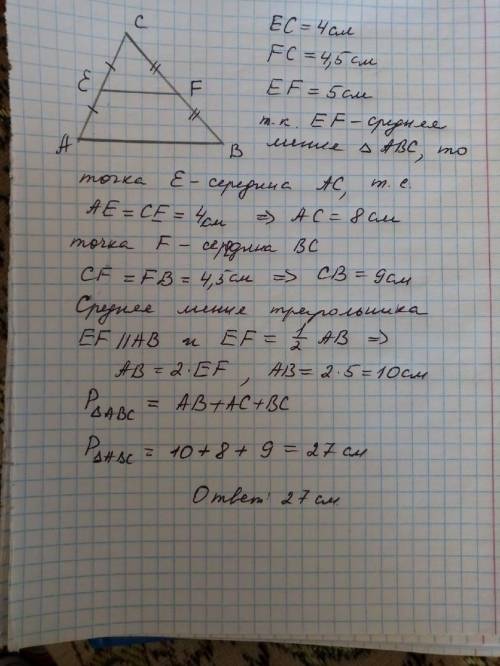 C
E
F
A
B
EC = 4 см
FC = 4,5 см
EF = 5 см
т.к. EF - среднее
линие △ ABC, то
точка E - середина AC, т.е.
AE = CE = 4 см ⇒ AC = 8 см
точка F - середина BC
CF = FB = 4,5 см ⇒ CB = 9 см
Среднее линие треугольника
EF || AB и EF = 1/2 AB ⇒
AB = 2·EF, AB = 2·5 = 10 см
P△ABC = AB + AC + BC
P△ABC = 10 + 8 + 9 = 27 см
Ответ: 27 см